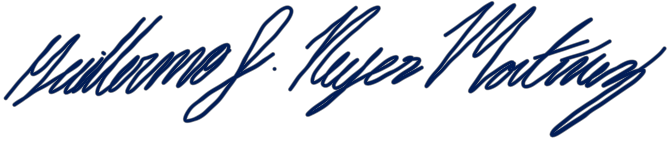 Guillermo J. Reyes Martínez